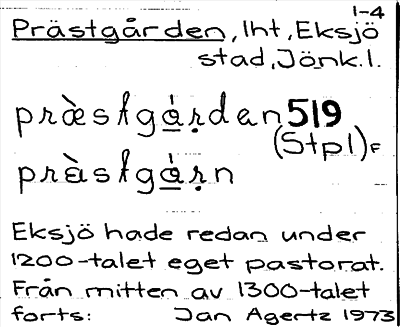 1-4
Prästgården, lht, Eksjö
stad, Jönk. l.
præ̀stgá̱ṛdan 519
(Stpl)F
prä̀stgá̱ṛn
Eksjö hade redan under
1200-talet eget pastorat.
Från mitten av 1300-talet
forts: Jan Agertz 1973